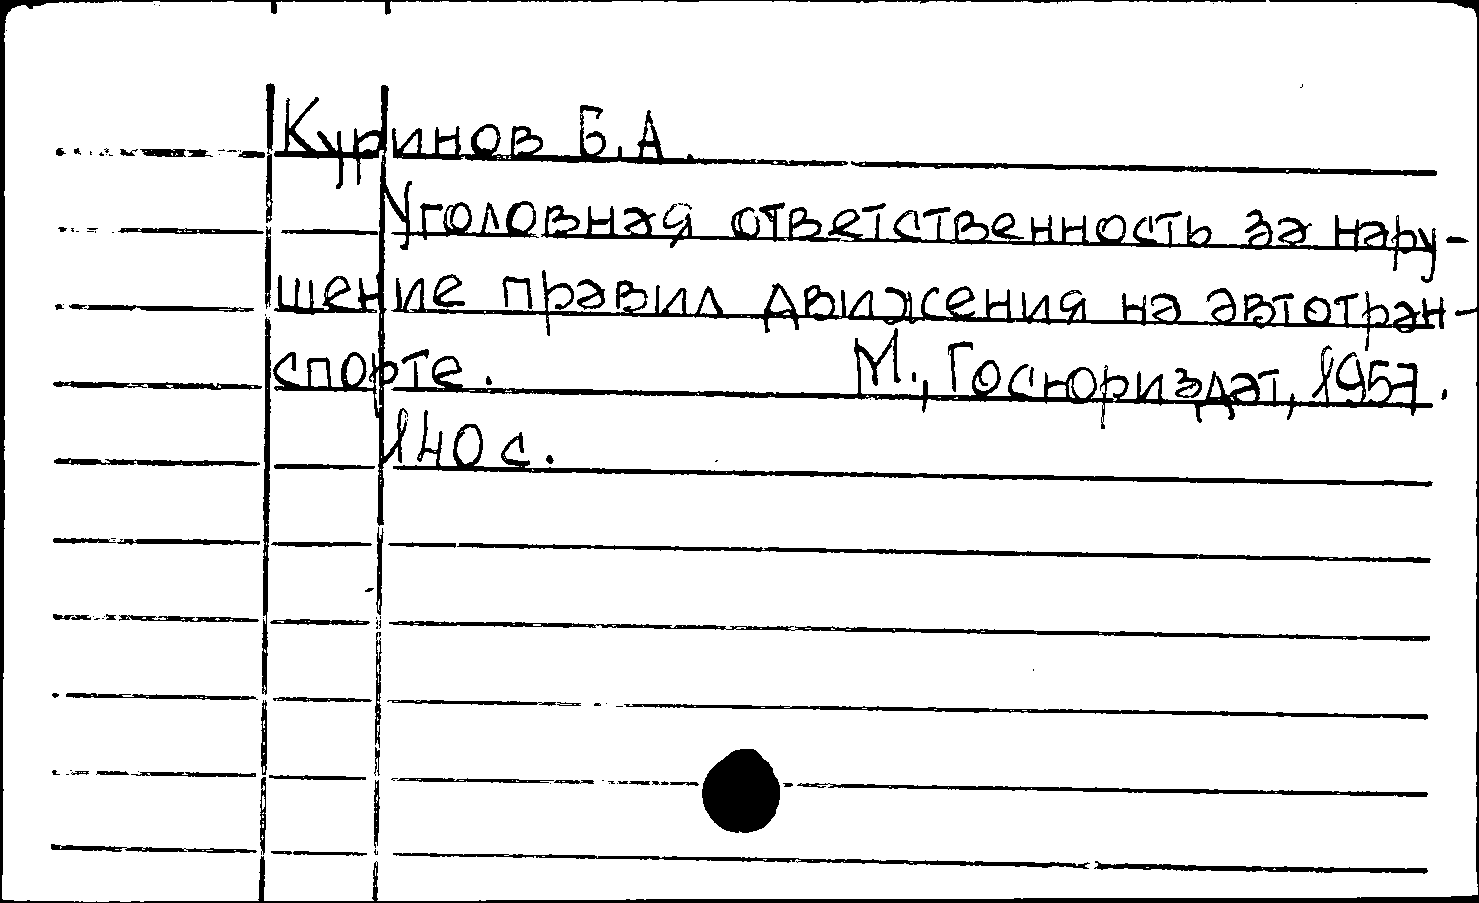 Куринов Б.А.
Уголовная ответственность за нару-
шение правил движения на автотран-
спорте. М., Госюриздат, 1957.
140 с.